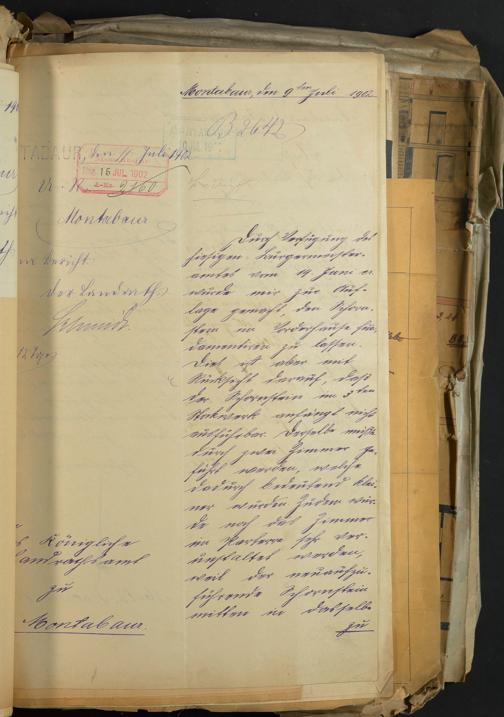 Montabaur, den 9ten Juli 1902
B 2642
TABAUR, den 11. Juli 1902
15 JUL. 1902
2160
Montabaur
Bericht
Der Landrath
Schmidt
Durch Verfügung des
hiesigen Bürgermeister-
amtes vom 14 Juni cr.
wurde mir zur Auf-
lage gemacht, den Schorn-
stein im Vorderhause fun-
damentiren zu lassen.
Dies ist aber mit
Rücksicht darauf, daß
der Schornstein im 3ten
Stockwerk anfängt nicht
ausführbar. Derselbe müßte
durch zwei Zimmer ge-
führt werden, welche
dadurch bedeutend klei-
ner würden. Zudem wür-
de noch das Zimmer
im Parterre sehr ver-
unstaltet werden,
weil der neuaufzu-
führende Schornstein
mitten in dasselbe
zu
Königliche
Landrathsamt
zu
Montabaur.